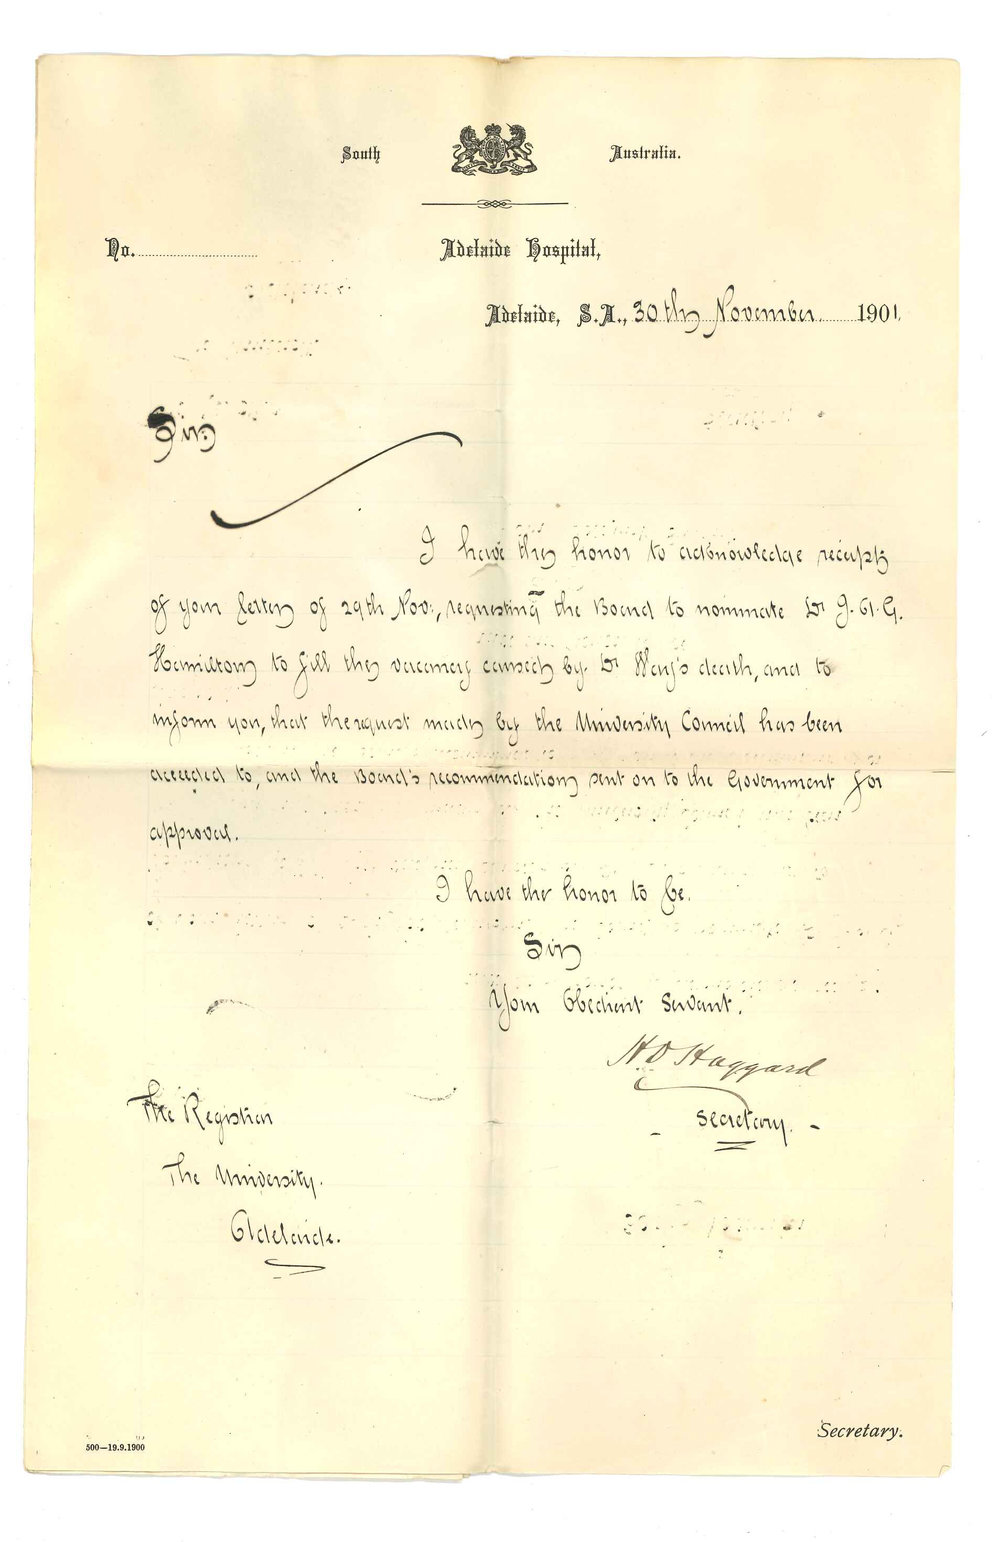 South Australia.
No.
Adelaide Hospital,
Adelaide, S.A., 30th November 1901.
Sir,
I have the honor to acknowledge receipt
of your letter of 29th Nov:, requesting the Board to nominate Dr J. A. G.
Hamilton to fill the vacancy caused by Dr Way's death, and to
inform you, that the request made by the University Council has been
acceeded to, and the Board's recommendation sent on to the Government for
approval.
I have the honor to be.
Sir
Your Obedient Servant.
H O Haggard
Secretary.
The Registrar
The University.
Adelaide.
500—19.9.1900
Secretary.